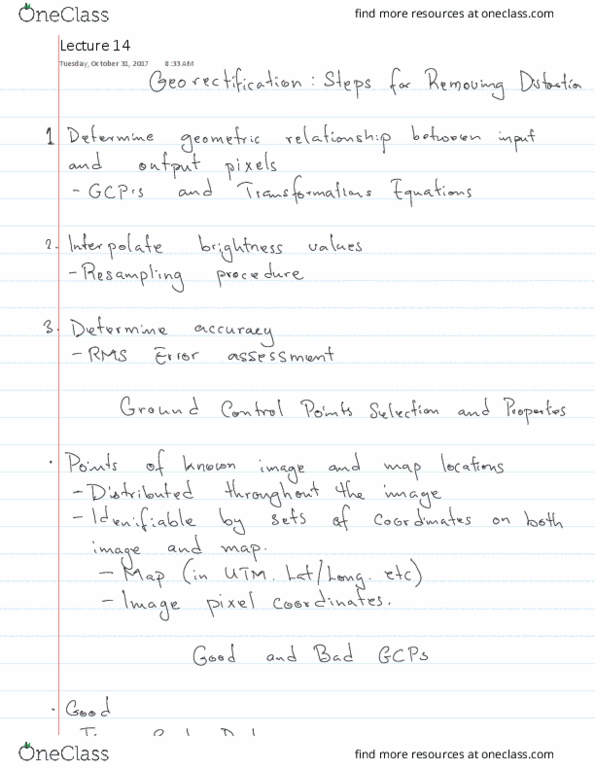 OneClass find more resources at oneclass.com
Lecture 14
Tuesday, October 31, 2017 8:33 AM
Georectification: Steps for Removing Distortion
1 Determine geometric relationship between input
and output pixels
- GCP's and Transformations Equations
2. Interpolate brightness values
- Resampling procedure
3. Determine accuracy
- RMS Error assessment
Ground Control Points Selection and Properties
· Points of known image and map locations
- Distributed throughout the image
- Idenifiable by sets of coordinates on both
image and map.
- Map (in UTM. Lat/Long. etc)
- Image pixel coordinates.
Good and Bad GCPs
· Good
OneClass find more resources at oneclass.com